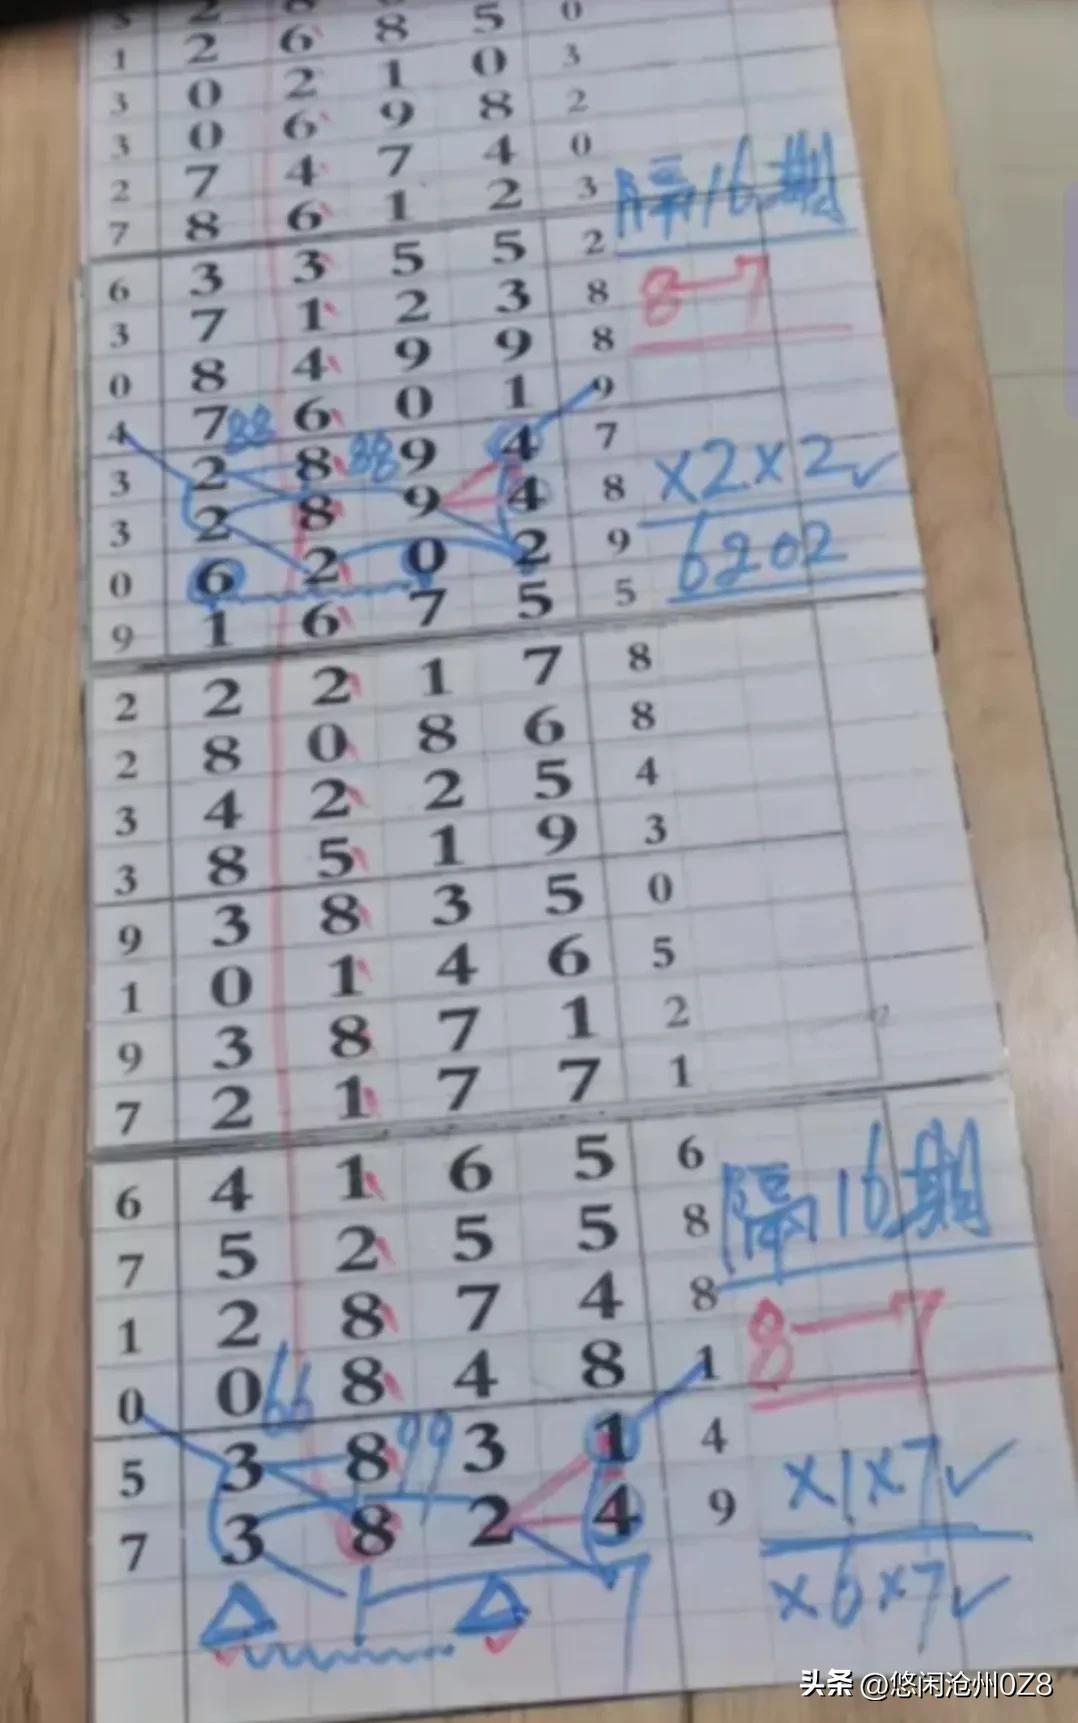 1 2 6 8 5 0
3 0 2 1 0 3
3 0 6 9 8 2
2 7 4 7 4 0
7 8 6 1 2 3
隔16期
6 3 3 5 5 2
8—7
3 7 1 2 3 8
0 8 4 9 9 8
4 7 6 0 1 9
88 88
3 2 8 9 4 7
×2×2✓
3 2 8 9 4 8
6202
0 6 2 0 2 9
9 1 6 7 5 5
2 2 2 1 7 8
2 8 0 8 6 8
3 4 2 2 5 4
3 8 5 1 9 3
9 3 8 3 5 0
1 0 1 4 6 5
9 3 8 7 1 2
7 2 1 7 7 1
6 4 1 6 5 6
隔16期
7 5 2 5 5 8
1 2 8 7 4 8
8—7
0 0 8 4 8 1
66 99
5 3 8 3 1 4
×1×7✓
7 3 8 2 4 9
×6×7✓
1 7
头条 @悠闲沧州0Z8